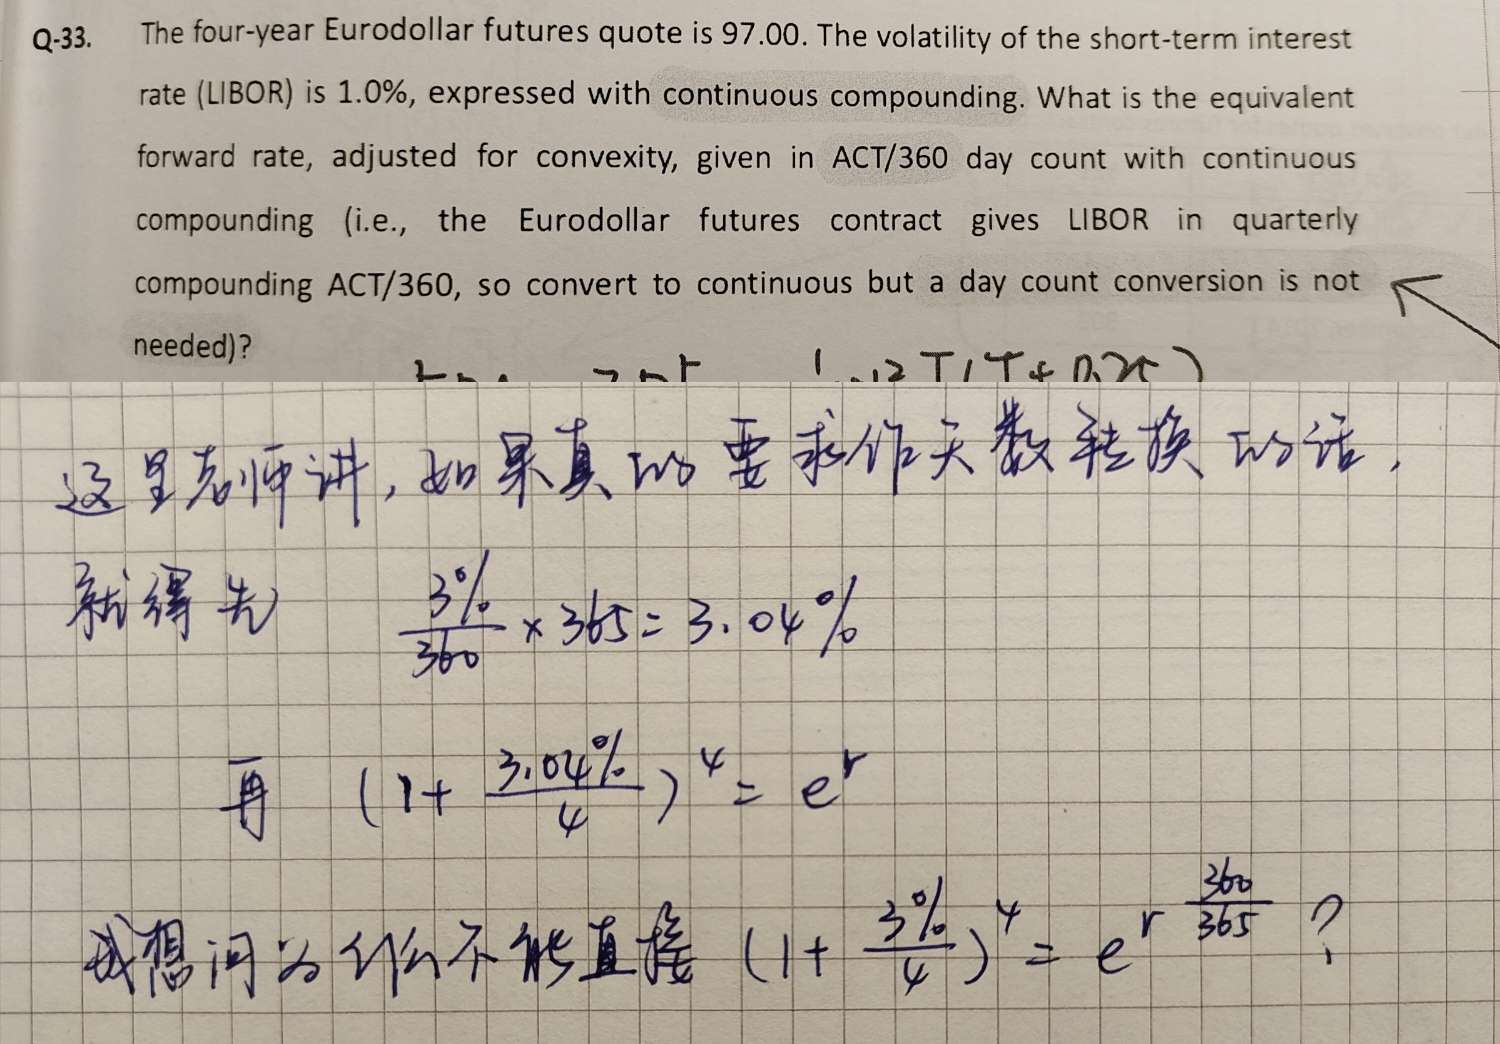 Q-33. The four-year Eurodollar futures quote is 97.00. The volatility of the short-term interest
rate (LIBOR) is 1.0%, expressed with continuous compounding. What is the equivalent
forward rate, adjusted for convexity, given in ACT/360 day count with continuous
compounding (i.e., the Eurodollar futures contract gives LIBOR in quarterly
compounding ACT/360, so convert to continuous but a day count conversion is not
needed)?
这里老师讲，如果真的要求作天数转换的话，
就得先 3%/360 × 365 = 3.04%
再 (1+ 3.04%/4)^4 = e^r
我想问为什么不能直接 (1+ 3%/4)^4 = e^r 360/365 ?